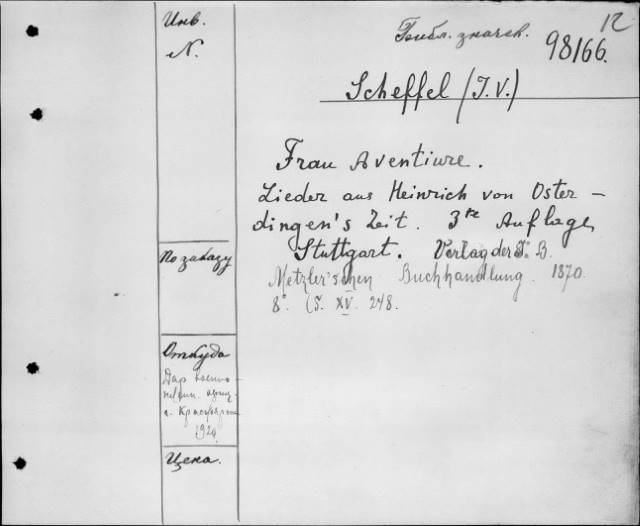 Инв.
N.
По заказу
Откуда
Дар военно-
г. Красноярск
1920.
Цена.
Библ. значк.
12
98166.
Scheffel (J. V.)
Frau Aventiure.
Lieder aus Heinrich von Oster-
dingen's Zeit. 3te Auflage,
Stuttgart. Verlag der J. B.
Metzler'schen Buchhandlung. 1870.
8°. (S. XV. 248.